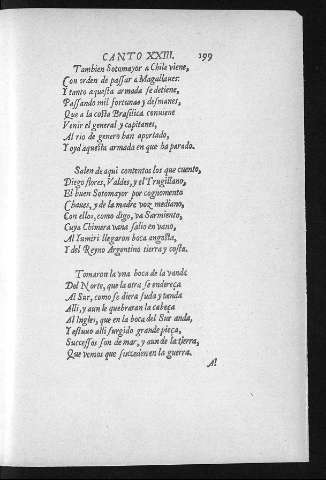 CANTO XXIII. 199
Tambien Sotomayor a Chile viene,
Con orden de passar a Magallanes:
Y tanto aquesta armada se detiene,
Passando mil fortunas y desmanes,
Que a la costa Brasilica conuiene
Venir el general y capitanes,
Al rio de genero han aportado,
Y oyd aquesta armada en que ha parado.
Salen de aqui contentos los que cuento,
Diego flores, Valdes, y el Trugillano,
El buen Sotomayor por cognomento
Chaues, y de la madre voz mediano,
Con ellos, como digo, va Sarmiento,
Cuya Chimera vana salio en vano,
Al Iumiri llegaron boca angosta,
Y del Reyno Argentino tierra y costa.
Tomaron la vna boca de la vanda
Del Norte, que la otra se endereça
Al Sur, como se diera suda y tanda
Alli, y aun le quebraran la cabeça
Al Ingles, que en la boca del Sur anda,
Y estuuo alli surgido grande pieça,
Successos son de mar, y aun de la tierra,
Que vemos que succeden en la guerra.
Al